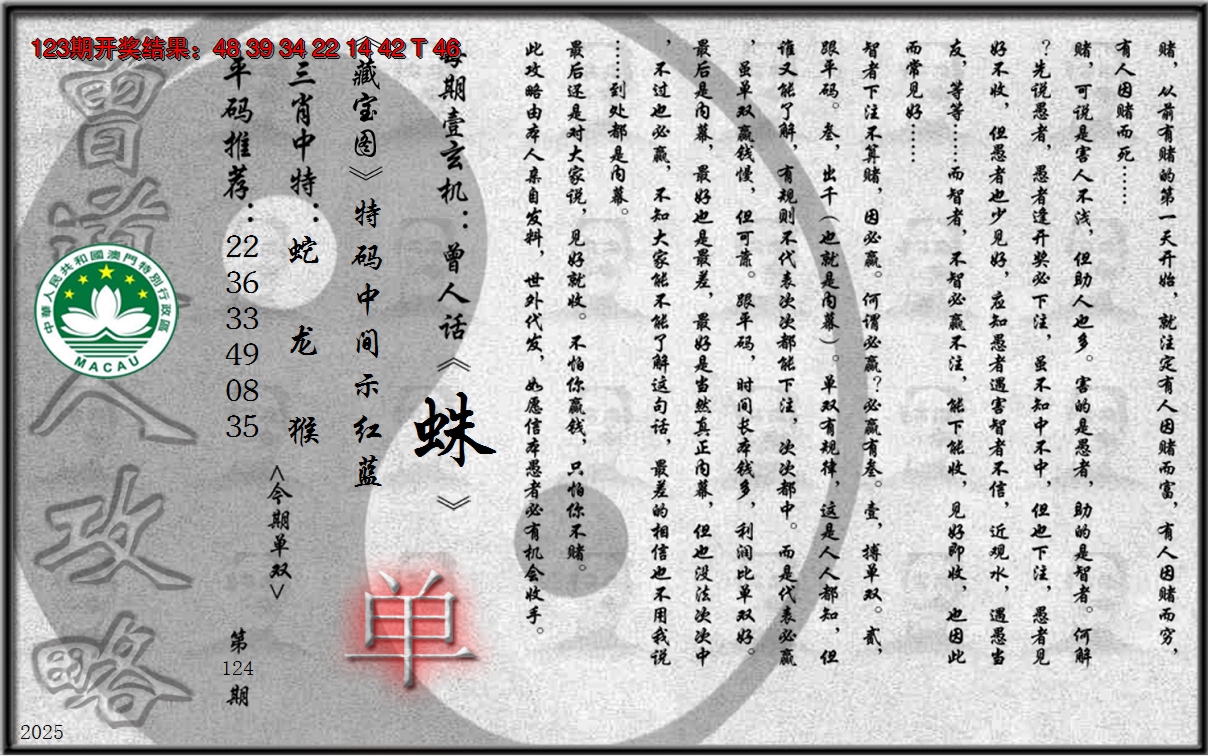 123期开奖结果：48 39 34 22 14 42 T 46
赌，从前有赌的第一天开始，就注定有人因赌而富，有人因赌而穷，
有人因赌而死……
赌，可说是害人不浅，但助人也多。害的是愚者，助的是智者。何解
？先说愚者，愚者逢开奖必下注，虽不知中不中，但也下注，愚者见
好不收，但愚者也少见好，应知愚者遇害智者不信，近观水，遇愚当
友，等等……而智者，不智必赢不注，能下能收，见好即收，也因此
而常见好……
智者下注不算赌，因必赢。何谓必赢？必赢有叁。壹，搏单双。贰，
跟平码。叁，出千（也就是内幕）。单双有规律，这是人人都知，但
谁又能了解，有规则不代表次次都能下注，次次都中。而是代表必赢
，虽单双赢钱慢，但可靠。跟平码，时间长本钱多，利润比单双好。
最后是内幕，最好也是最差，最好是当然真正内幕，但也没法次次中
，不过也必赢，不知大家能不能了解这句话，最差的相信也不用我说
……到处都是内幕。
最后还是对大家说，见好就收。不怕你赢钱，只怕你不赌。
此攻略由本人亲自发料，世外代发，如愿信本愚者必有机会收手。
每期壹玄机：曾人话《蛛》
《藏宝图》特码中间示红蓝
单
三肖中特：蛇 龙 猴
<今期单双>
平码推荐：
22
36
33
49
08
35
第
124
期
曾道人攻略
中華人民共和國澳門特別行政區
MACAU
2025